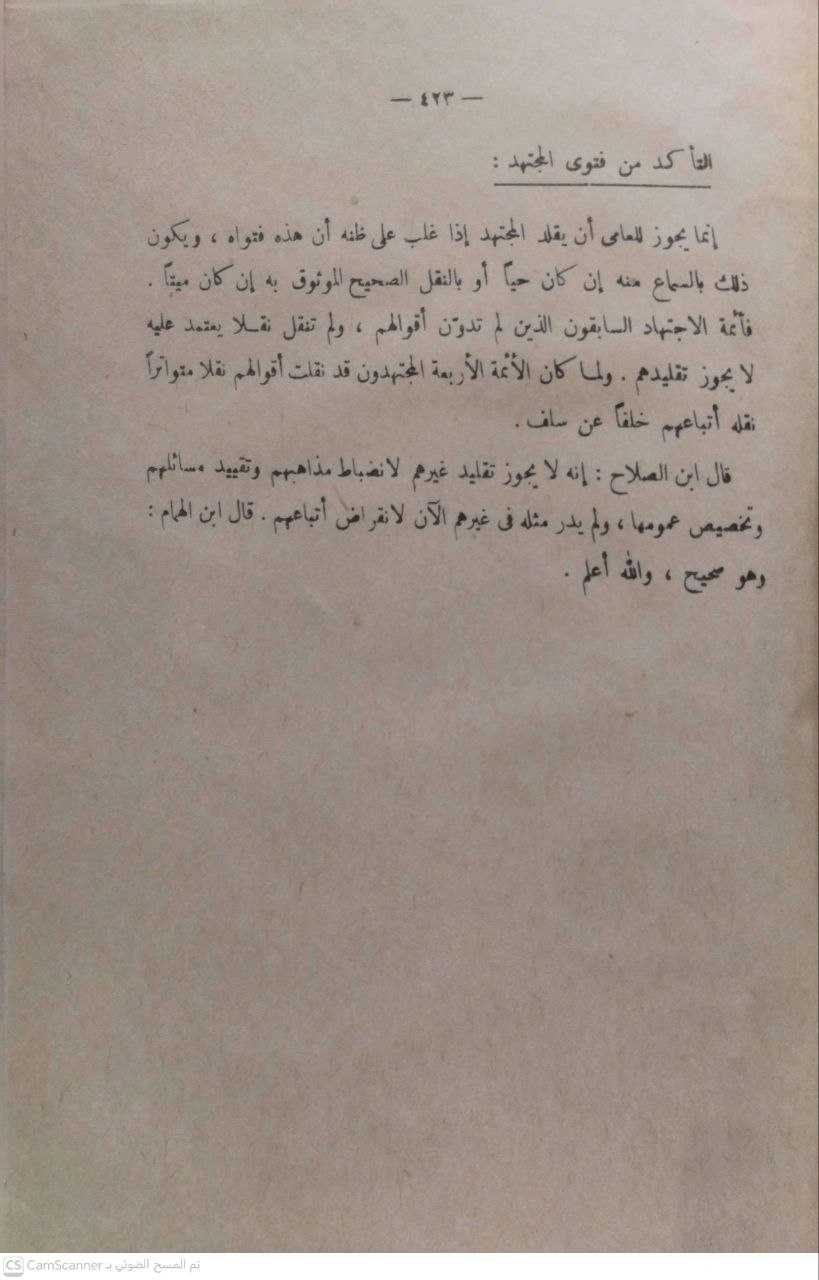 — ٤٢٣ —
التأكد من فتوى المجتهد :
إنما يجوز للعامى أن يقلد المجتهد إذا غلب على ظنه أن هذه فتواه ، ويكون
ذلك بالسماع منه إن كان حياً أو بالنقل الصحيح الموثوق به إن كان ميتاً .
فأئمة الاجتهاد السابقون الذين لم تدوّن أقوالهم ، ولم تنقل نقلا يعتمد عليه
لا يجوز تقليدهم . ولما كان الأئمة الأربعة المجتهدون قد نقلت أقوالهم نقلا متواتراً
نقله أتباعهم خلفاً عن سلف .
قال ابن الصلاح : إنه لا يجوز تقليد غيرهم لانضباط مذاهبهم وتقييد مسائلهم
وتخصيص عمومها ، ولم يدر مثله فى غيرهم الآن لانقراض أتباعهم . قال ابن الهمام :
وهو صحيح ، والله أعلم .
CS CamScanner تم المسح الضوئي بـ